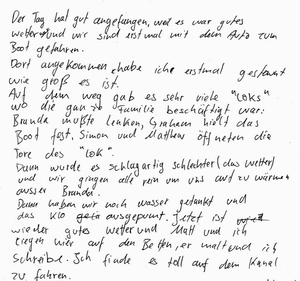 Der Tag hat gut angefangen, weil es war gutes
wetter und wir sind erstmal mit dem Auto zum
Boot gefahren.
Dort angekommen habe ich erstmal gestaunt
wie groß es ist.
Auf dem weg gab es sehr viele "LOKs"
wo die ganze Familie beschäftigt war:
Branda mußte lenken, Graham hielt das
Boot fest, Simon und Matthew öffneten die
Tore des "LOK".
Dann wurde es schlagartig schlechter (das wetter)
und wir gingen alle rein um uns auf zu wärmen
ausser Branda.
Dann haben wir noch wasser getankt und
das Klo ausgepumt. Jetzt ist
wieder gutes wetter und Matt und ich
liegen hier auf den Betten, er malt und ich
schreibe. Ich finde es toll auf dem Kanal
zu fahren.